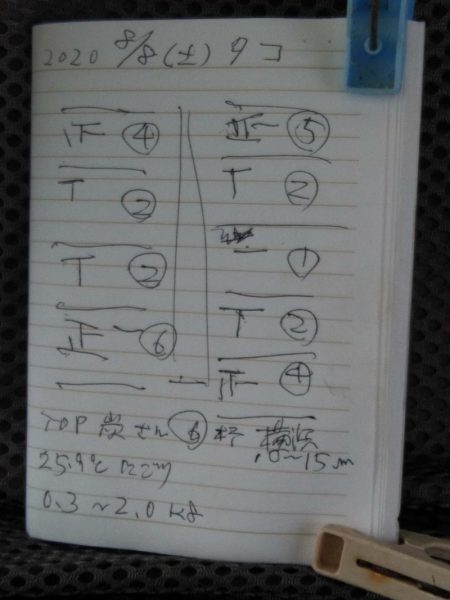 2020 8/8(土) タコ
正 ④
T ②
T ②
正一 ⑥
正 ⑤
T ②
一 ①
T ②
正 ④
TOP 賞さん ⑥杯 横浜
25.9℃ 10~15m
0.3~2.0kg